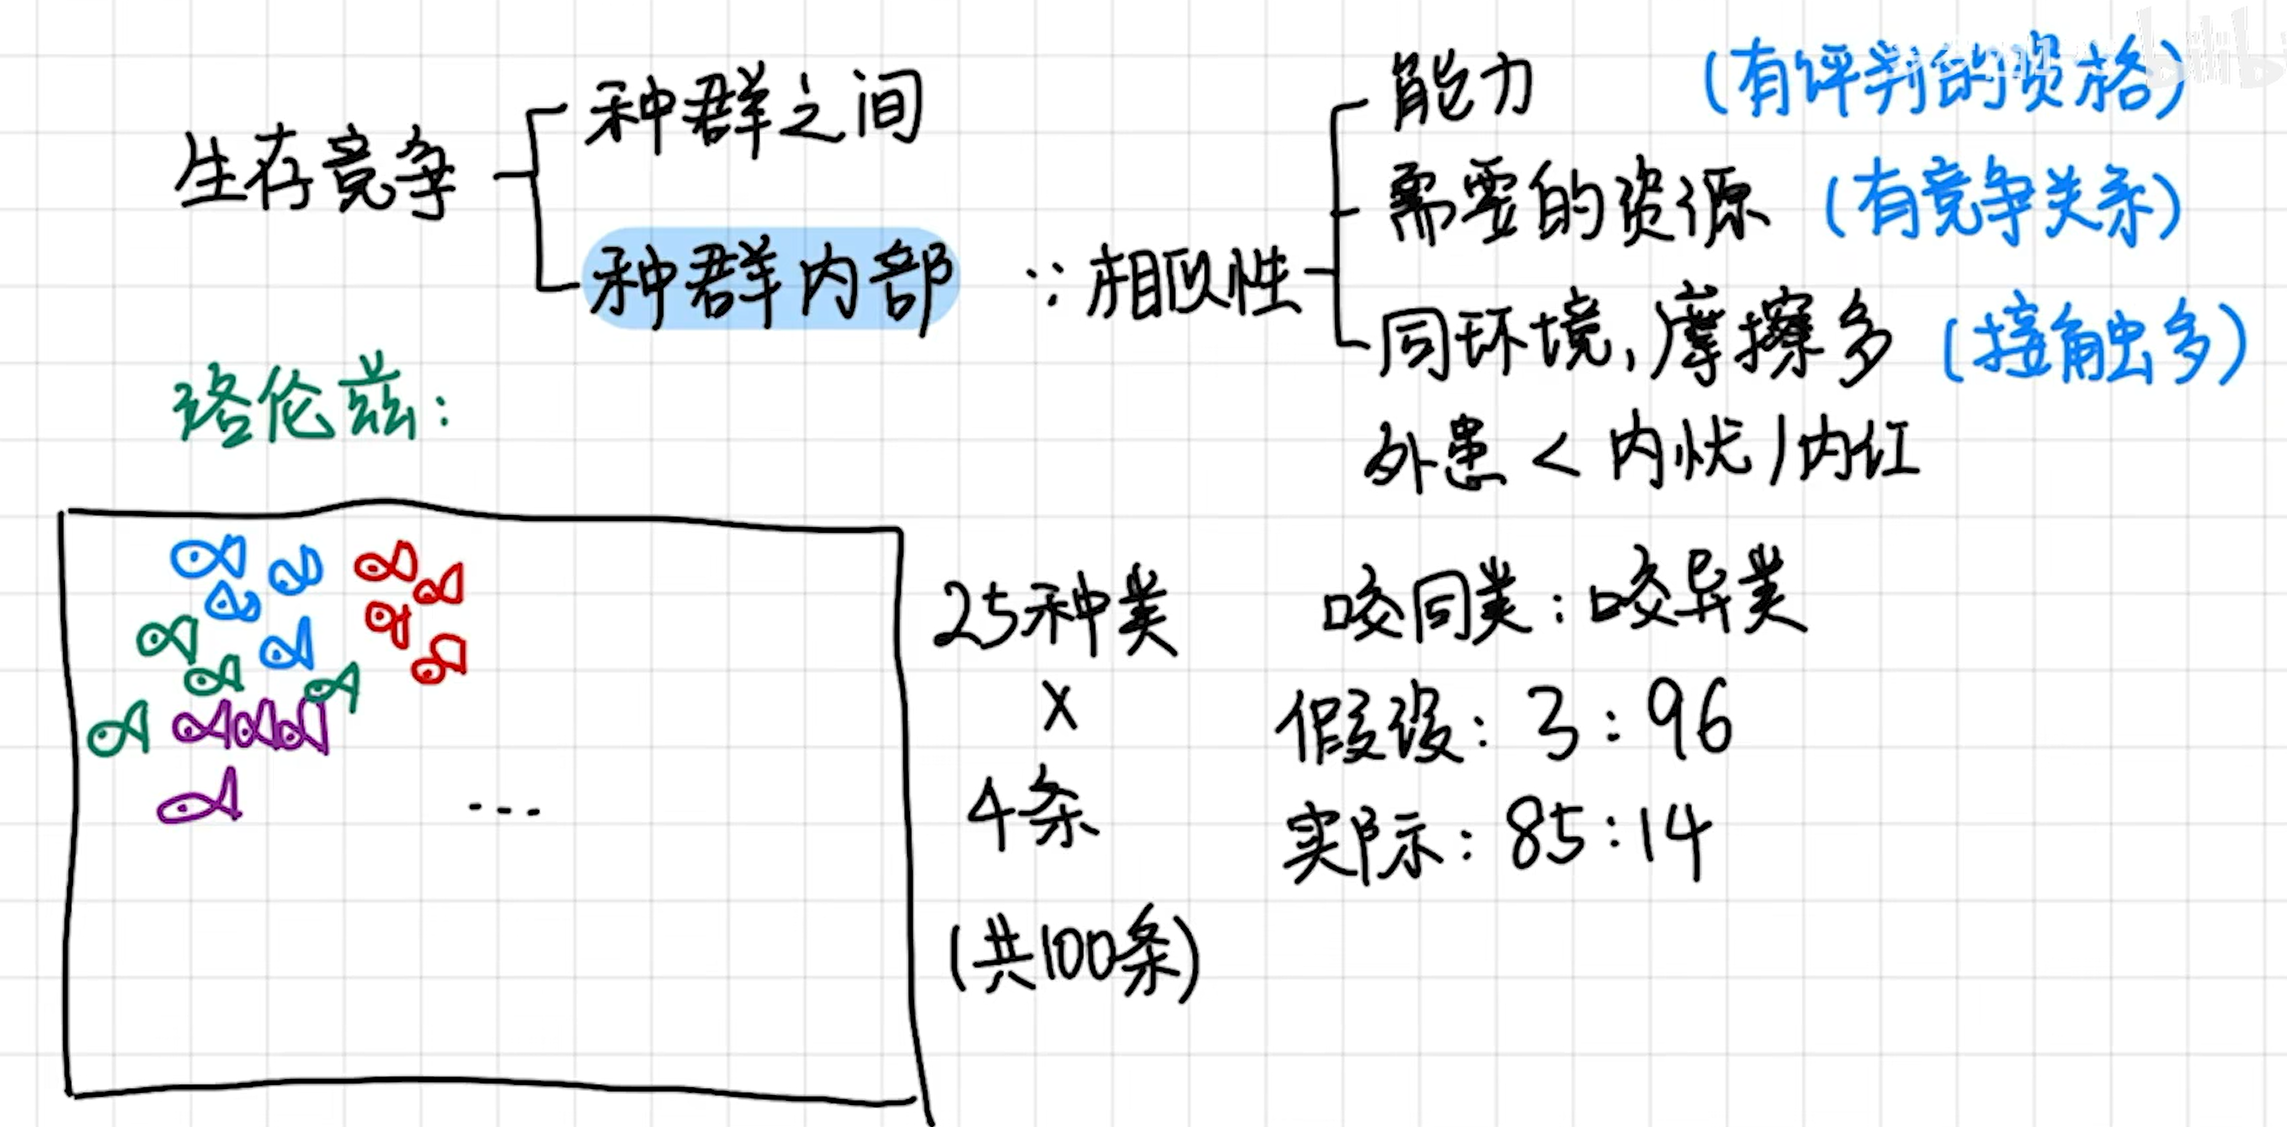 生存竞争
种群之间
种群内部
∵相似性
能力 (有评判的资格)
需要的资源 (有竞争关系)
同环境,摩擦多 (接触多)
外患 < 内忧/内红
洛伦兹:
25种类
×
4条
(共100条)
咬同类:咬异类
假设:3:96
实际:85:14
...
bilibili